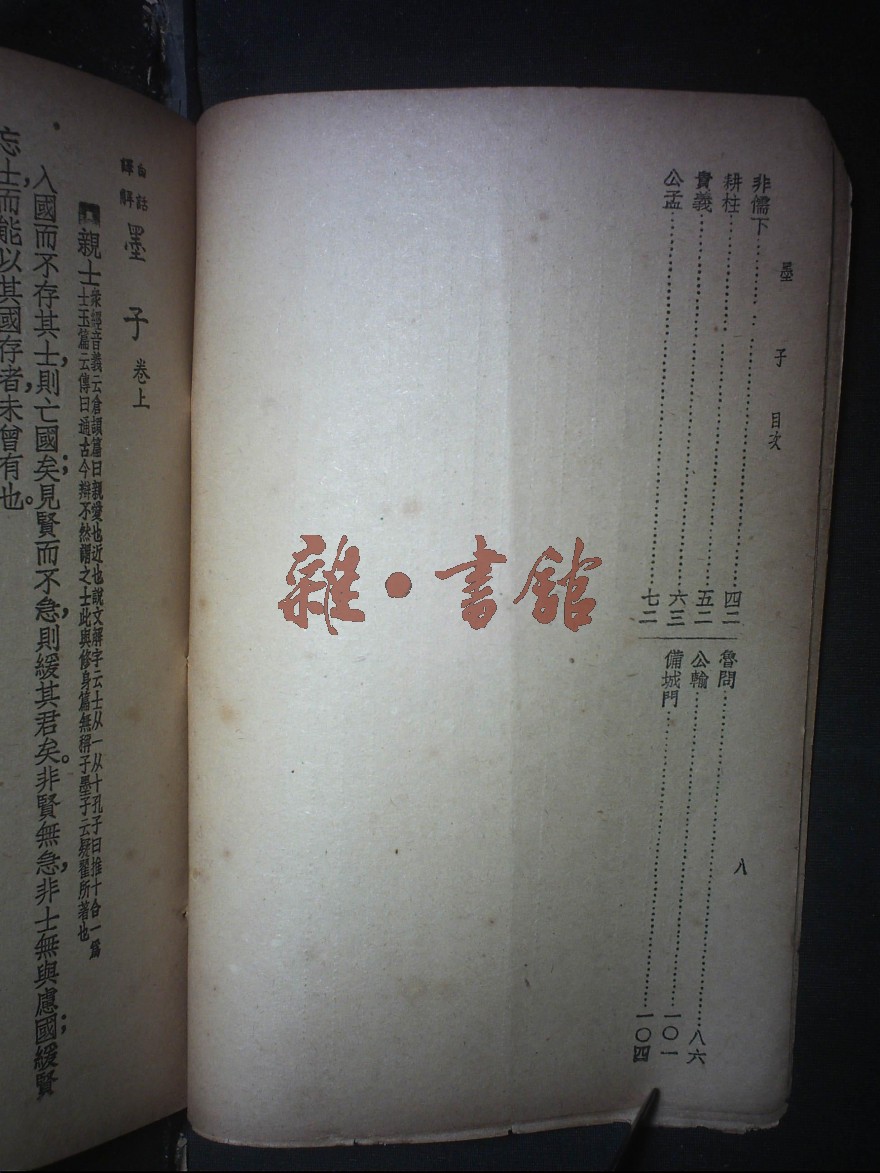 墨子 目次 八
非儒下 四二
耕柱 五二
貴義 六三
公孟 七二
魯問 八六
公輸 一〇一
備城門 一〇四
雜·書舘
白話譯解 墨子 卷上
親士 衆經音義云倉頡篇曰親愛也近也說文解字云士从一从十孔子曰推十合一爲
士玉篇云傳曰通古今辯不然謂之士此與修身篇無稱子墨子云疑翟所著也
入國而不存其士，則亡國矣；見賢而不急，則緩其君矣。非賢無急，非士無與慮國；緩賢
忘士，而能以其國存者，未曾有也。